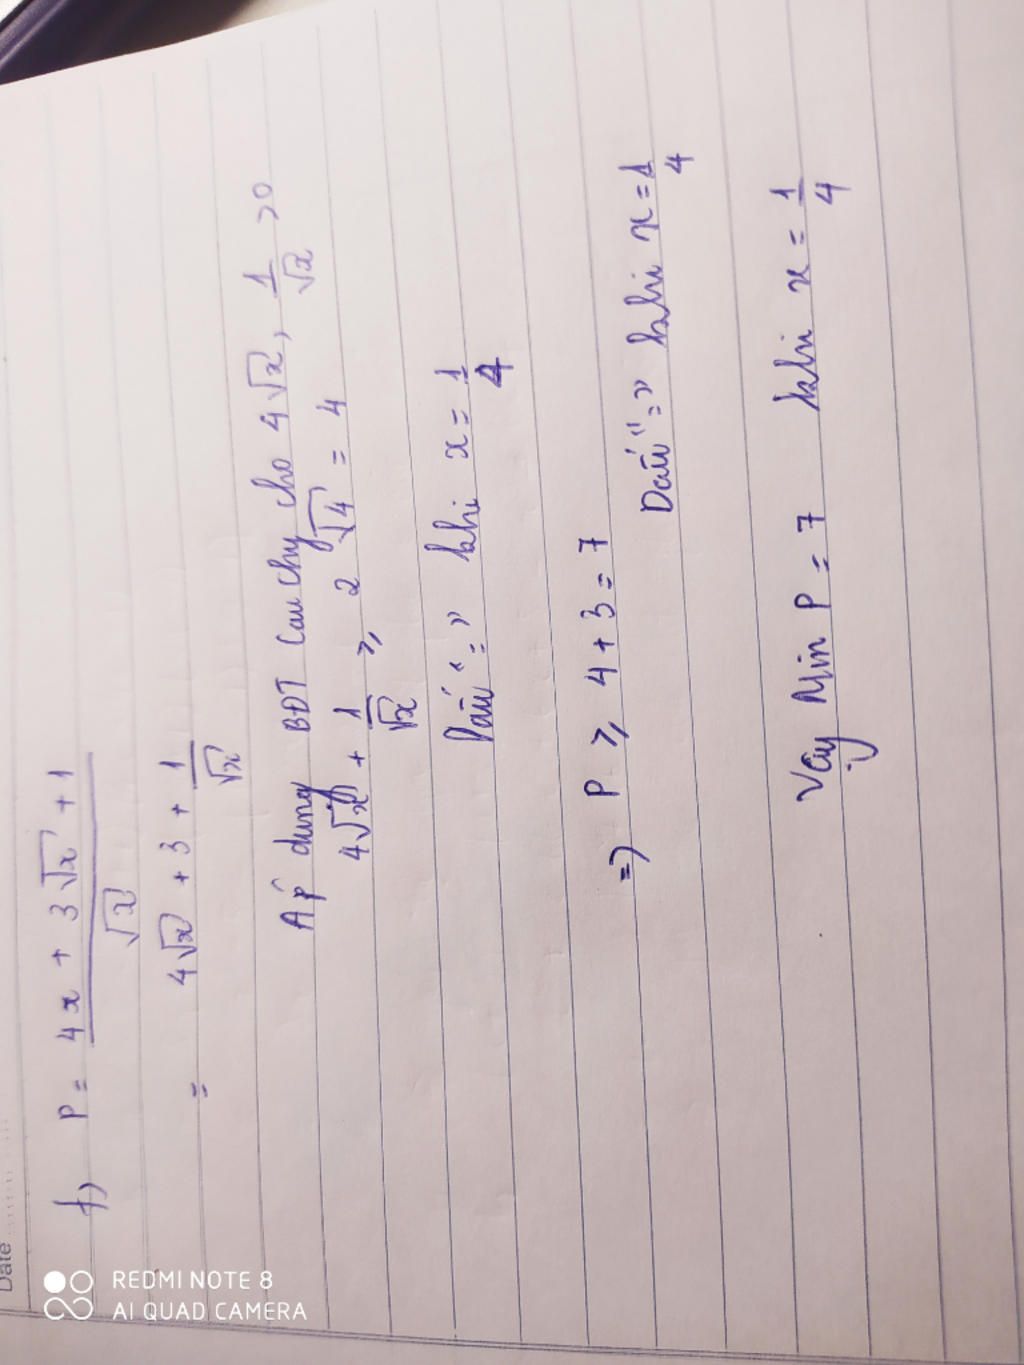 Date
f) P = 4x + 3√x + 1
√x
= 4√x + 3 + 1/√x
Áp dụng BĐT Cauchy cho 4√x, 1/√x >0
4√x + 1/√x ⩾ 2√4 = 4
Dấu "=" khi x = 1/4
=> P ⩾ 4 + 3 = 7
Dấu "=" khi x = 1/4
Vậy Min P = 7 khi x = 1/4
REDMI NOTE 8
AI QUAD CAMERA